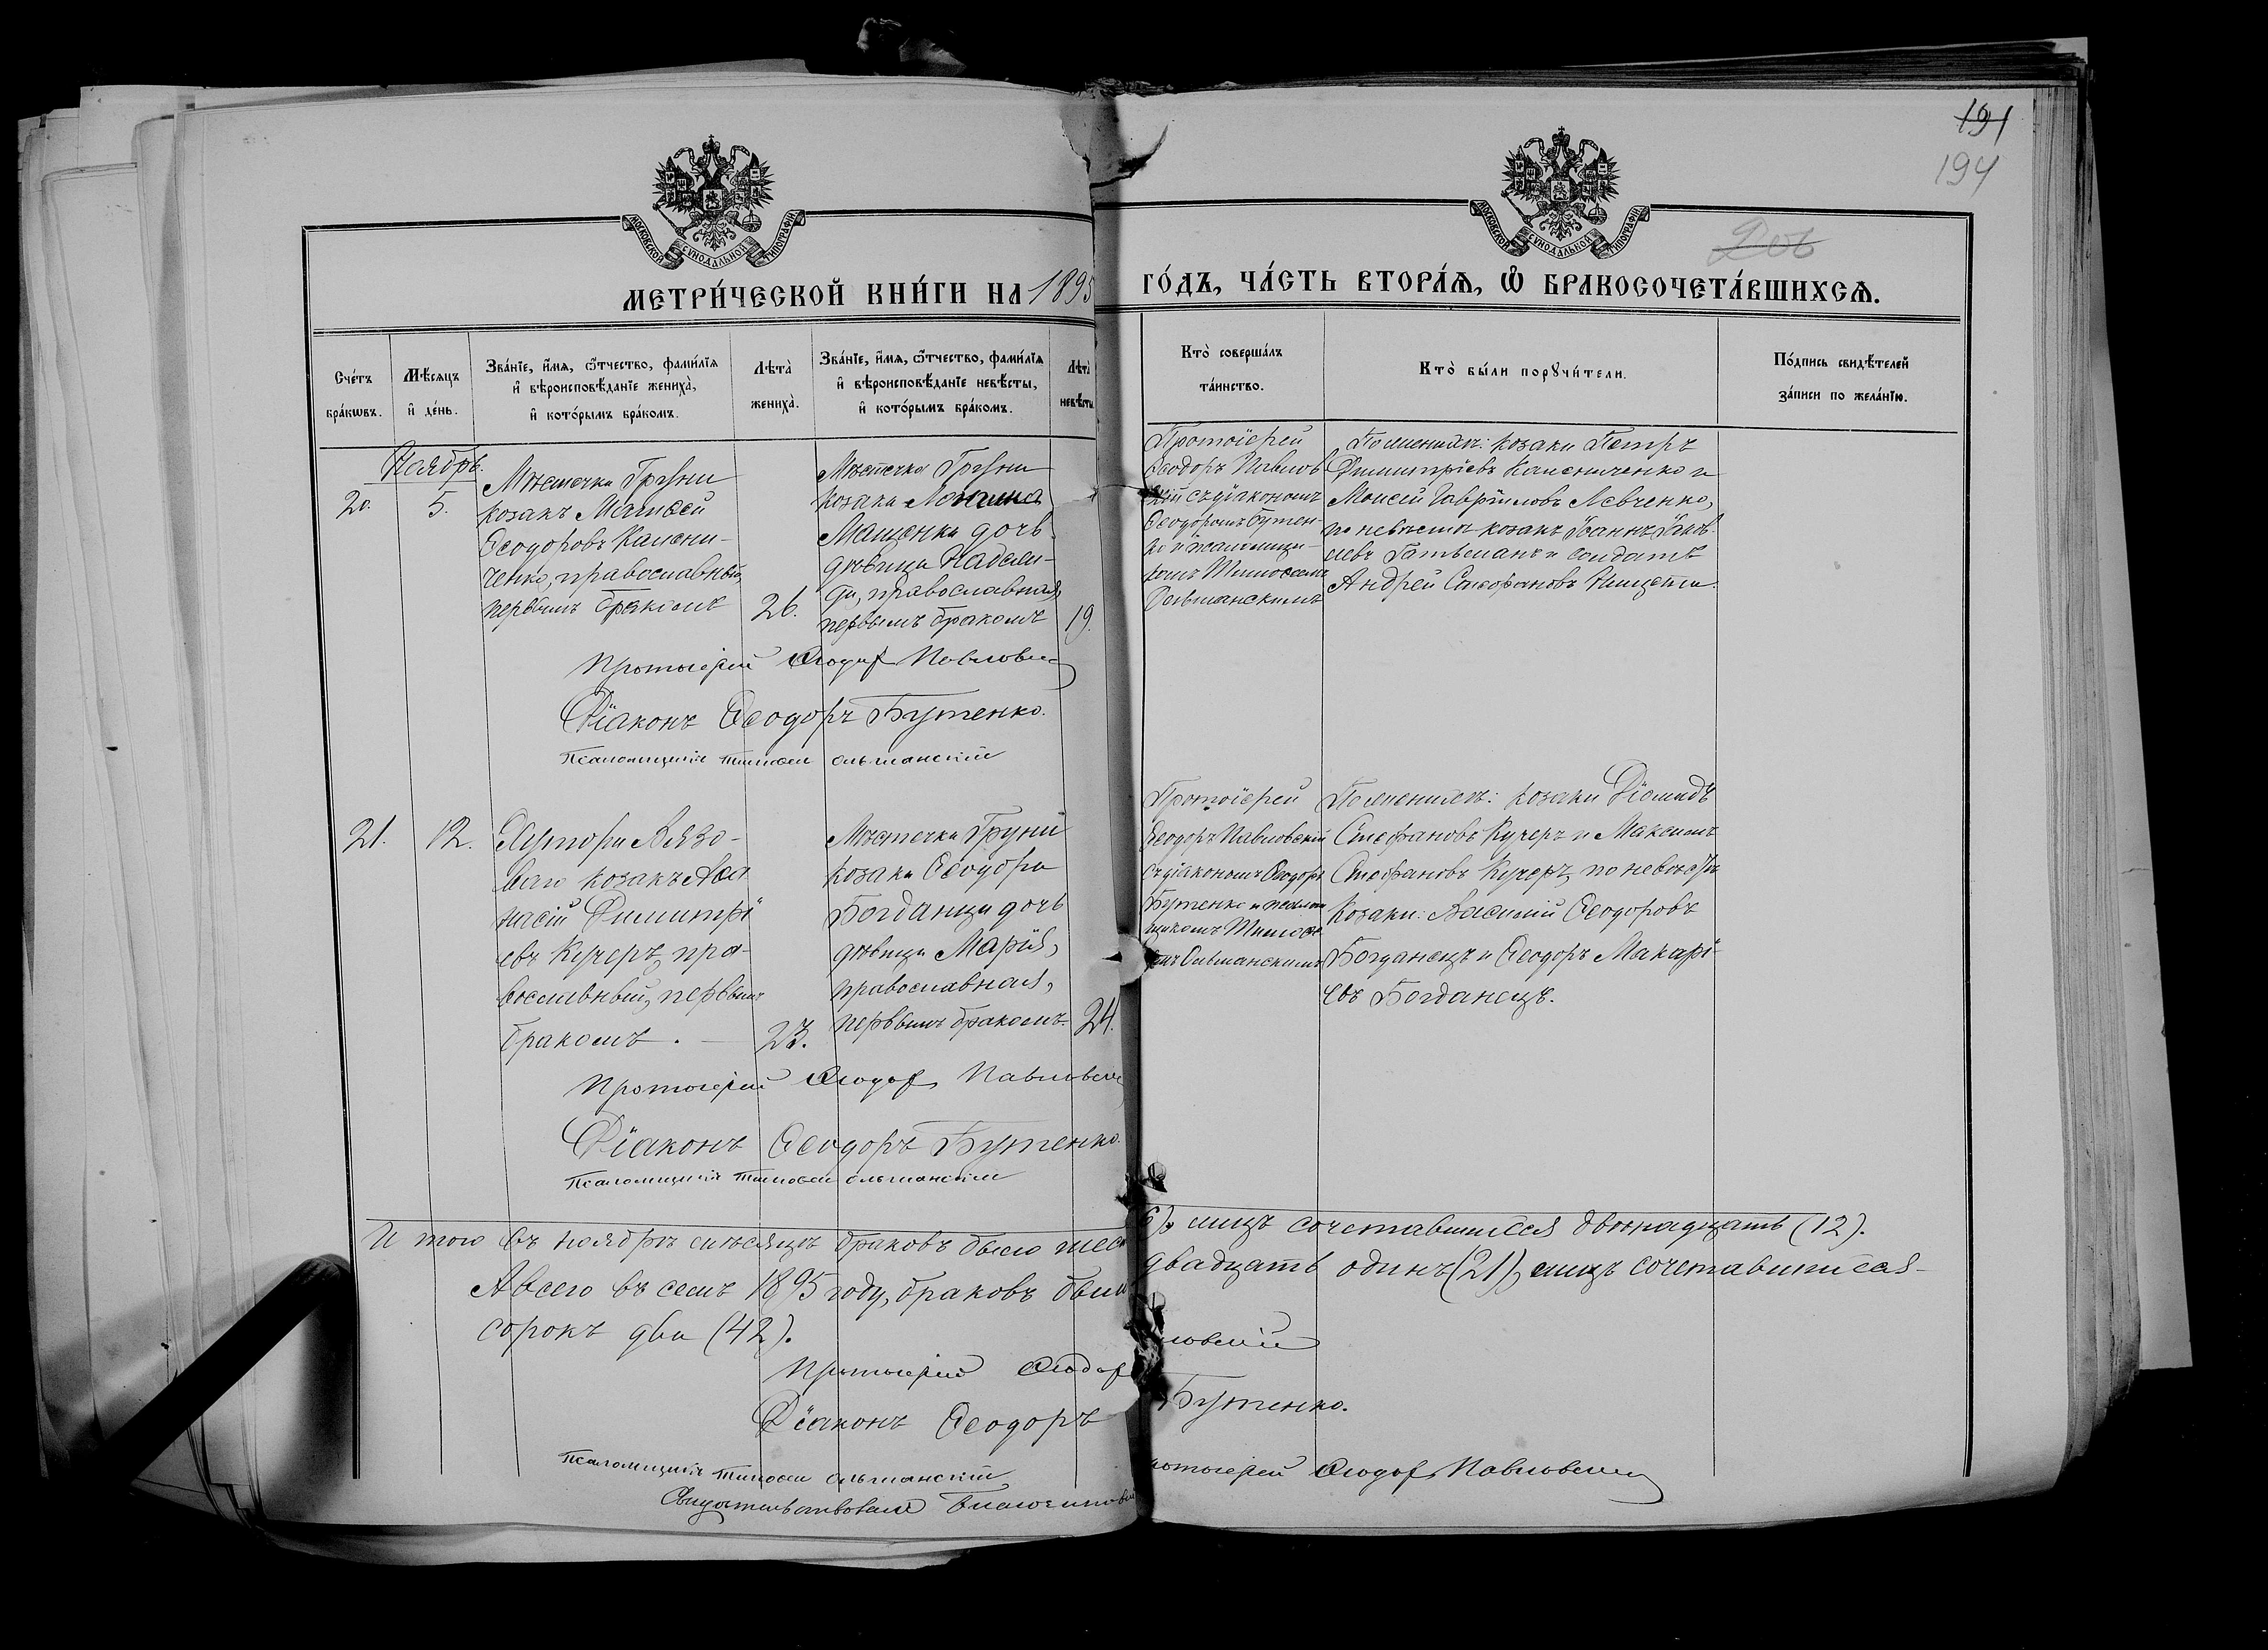 191
194
МОСКОВСКОЙ СѴНОДАЛЬНОЙ ТИПОГРАФІИ
МОСКОВСКОЙ СѴНОДАЛЬНОЙ ТИПОГРАФІИ
МЕТРИ́ЧЕСКОЙ КНИ́ГИ НА 1895
ГО́ДЪ, ЧА́СТЬ ВТОРА́Ѧ, Ѡ҆ БРАКОСОЧЕТА́ВШИХСѦ.
Сче́тъ
бра́кѡвъ.
Мѣ́сѧцъ
и҆ де́нь.
Зва́нїе, и҆́мѧ, ѻ҆́тчество, фами́лїѧ
и҆ вѣроисповѣ́данїе жениха̀,
и҆ кото́рымъ бра́комъ.
Лѣ́та
жениха̀.
Зва́нїе, и҆́мѧ, ѻ҆́тчество, фами́лїѧ
и҆ вѣроисповѣ́данїе невѣ́сты,
и҆ кото́рымъ бра́комъ.
Лѣ́та
невѣ́сты
Кто̀ соверша́лъ
та́инство.
Кто̀ бы́ли порꙋчи́тели.
По́дпись свидѣ́телей
за́писи по жела́нїю.
Ноябрь.
20.
5.
Мѣстечка Груни
козакъ Матѳей
Ѳеодоровъ Камени-
ченко, православный,
первымъ бракомъ
26.
Мѣстечка Груни
козака
дочь
дѣвица Надеж-
да, православная,
первымъ бракомъ
19.
Протоіерей
Ѳеодоръ Павлов
скій съ діакономъ
Ѳеодоромъ Бутен-
ко и псаломщи-
комъ Тимоѳеемъ
Ольшанскимъ
По женихѣ: козаки Петръ
Димитріевъ Камениченко и
Моисей Гавріиловъ Левченко,
по невѣстѣ козакъ Іоаннъ Іаков-
левъ Гетьманъ и солдатъ
Андрей Стефановъ
Протоіерей Ѳеодоръ Павловскій
Діаконъ Ѳеодоръ Бутенко.
Псаломщикъ Тимоѳей Ольшанскій
21.
12.
Хутора Вязо-
ваго козакъ Аѳа
насій Димитрі
евъ Кучеръ, пра-
вославный, первымъ
бракомъ.
23.
Мѣстечка Груни
козака Ѳеодора
Богданца дочь
дѣвица Марія,
православная,
первымъ бракомъ.
24.
Протоіерей
Ѳеодоръ Павловскій
съ діакономъ Ѳеодоръ
Бутенко и псалом
щикомъ Тимоѳе
емъ Ольшанскимъ
По женихѣ: козаки Діомидъ
Стефановъ Кучеръ и Максимъ
Стефановъ Кучеръ, по невѣстѣ
козаки: Василій Ѳеодоровъ
Богданецъ и Ѳеодоръ Макарі-
евъ Богданецъ.
Протоіерей Ѳеодоръ Павловскій
Діаконъ Ѳеодоръ Бутенко.
Псаломщикъ Тимоѳей Ольшанскій
И того въ ноябрѣ мѣсяцѣ браковъ было шес
6), лицъ сочетавшихся двѣнадцать (12).
А всего въ семъ 1895 году, браковъ было
двадцать одинъ (21), лицъ сочетавшихся-
сорокъ два (42).
Протоіерей Ѳеодоръ
ловскій
Діаконъ Ѳеодоръ
Бутенко.
Псаломщикъ Тимоѳей Ольшанскій
Свидѣтельствовалъ Благочинный
ротоіерей Ѳеодоръ Павловскій